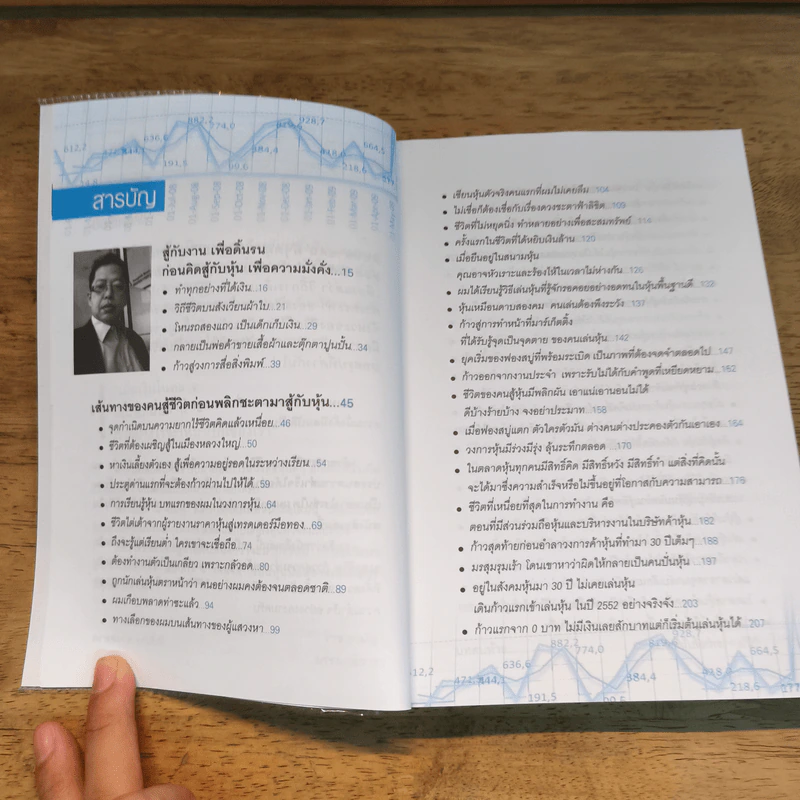 612,2
636,6
882,2
774,0
191,5
99,6
384,4
928,7
218,6
664,5
สารบัญ
สู้กับงาน เพื่อดิ้นรน
ก่อนคิดสู้กับหุ้น เพื่อความมั่งคั่ง...15
• ทำทุกอย่างที่ได้เงิน...16
• วิถีชีวิตบนสังเวียนผ้าใบ...21
• โหนรถสองแถว เป็นเด็กเก็บเงิน...29
• กลายเป็นพ่อค้าขายเสื้อผ้าและตุ๊กตาปูนปั้น...34
• ก้าวสู่วงการสื่อสิ่งพิมพ์...39
เส้นทางของคนสู้ชีวิตก่อนพลิกชะตามาสู้กับหุ้น...45
• จุดกำเนิดบนความยากไร้ชีวิตคิดแล้วเหนื่อย...46
• ชีวิตที่ต้องเผชิญสู้ในเมืองหลวงใหญ่...50
• หาเงินเลี้ยงตัวเอง สู้เพื่อความอยู่รอดในระหว่างเรียน...54
• ประตูด่านแรกที่จะต้องก้าวผ่านไปให้ได้...59
• การเรียนรู้หุ้น บทแรกของผมในวงการหุ้น...64
• ชีวิตไต่เต้าจากผู้รายงานราคาหุ้นสู่เทรดเดอร์มือทอง...69
• ถึงจะรู้แต่เรียนต่ำ ใครเขาจะเชื่อถือ...74
• ต้องทำงานตัวเป็นเกลียว เพราะกลัวอด...80
• ถูกนักเล่นหุ้นตราหน้าว่า คนอย่างผมคงต้องจนตลอดชาติ...89
• ผมเกือบพลาดท่าซะแล้ว 94
• ทางเลือกของผมบนเส้นทางของผู้แสวงหา...99
• เซียนหุ้นตัวจริงคนแรกที่ผมไม่เคยลืม...104
• ไม่เชื่อก็ต้องเชื่อกับเรื่องดวงชะตาฟ้าลิขิต...109
• ชีวิตที่ไม่หยุดนิ่ง ทำหลายอย่างเพื่อสะสมทรัพย์ ...114
• ครั้งแรกในชีวิตที่ได้หยิบเงินล้าน...120
• เมื่อยืนอยู่ในสนามหุ้น
คุณอาจหัวเราะและร้องไห้ในเวลาไม่ห่างกัน...126
• ผมได้เรียนรู้วิธีเล่นหุ้นที่รู้จักรอคอยอย่างอดทนในหุ้นพื้นฐานดี...132
• หุ้นเหมือนดาบสองคม คนเล่นต้องพึงระวัง 137
• ก้าวสู่การทำหน้าที่มาร์เก็ตติ้ง
ที่ได้รับรู้จุดเป็นจุดตาย ของคนเล่นหุ้น ...142
• ยุคเริ่มของฟองสบู่ที่พร้อมระเบิด เป็นภาพที่ต้องจดจำตลอดไป ...147
• ก้าวออกจากงานประจำ เพราะรับไม่ได้กับคำพูดที่เหยียดหยาม...152
• ชีวิตของคนสู้หุ้นมีพลิกผัน เอาแน่เอานอนไม่ได้
ดีบ้างร้ายบ้าง จงอย่าประมาท ...158
• เมื่อฟองสบู่แตก ตัวใครตัวมัน ต่างคนต่างประคองตัวกันเอาเอง...164
• วงการหุ้นมีร่วงมีรุ่ง ลุ้นระทึกตลอด ...170
• ในตลาดหุ้นทุกคนมีสิทธิ์คิด มีสิทธิ์หวัง มีสิทธิ์ทำ แต่สิ่งที่คิดนั้น
จะได้มาซึ่งความสำเร็จหรือไม่ขึ้นอยู่ที่โอกาสกับความสามารถ...176
• ชีวิตที่เหนื่อยที่สุดในการทำงาน คือ
ตอนที่มีส่วนร่วมถือหุ้นและบริหารงานในบริษัทค้าหุ้น ...182
• ก้าวสุดท้ายก่อนอำลาวงการค้าหุ้นที่ทำมา 30 ปีเต็มๆ ...188
• มรสุมรุมเร้า โดนเขาหาว่าผิดให้กลายเป็นคนปั่นหุ้น ...197
• อยู่ในสังคมหุ้นมา 30 ปี ไม่เคยเล่นหุ้น
เดินก้าวแรกเข้าเล่นหุ้น ในปี 2552 อย่างจริงจัง...203
• ก้าวแรกจาก 0 บาท ไม่มีเงินเลยสักบาทแต่ก็เริ่มต้นเล่นหุ้นได้...207
612,2
636,6
191,5
882,2
774,0
384,4
218,6
664,5
277